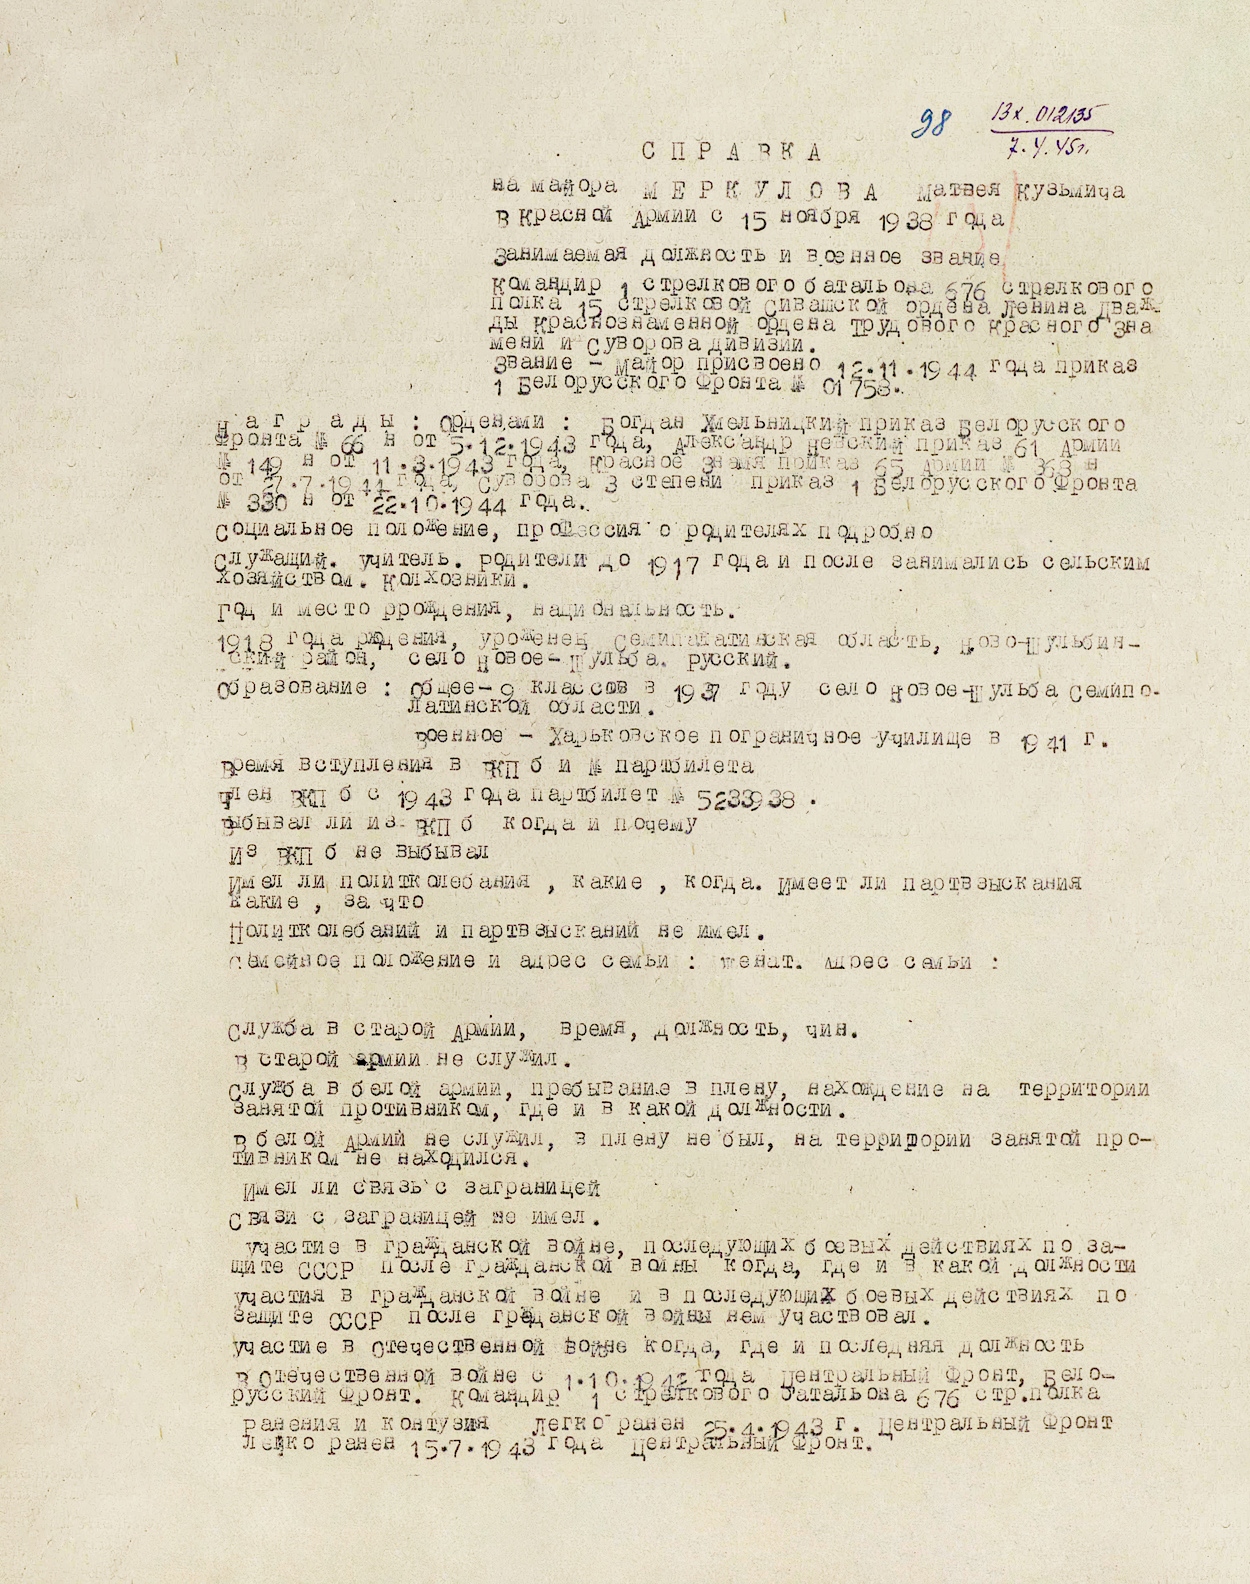 98 Вх. 012135
7.4.45г.
СПРАВКА
на майора МЕРКУЛОВА Матвея Кузьмича
в Красной Армии с 15 ноября 1938 года
Занимаемая должность и военное звание
Командир 1 стрелкового батальона 676 стрелкового
полка 15 стрелковой Сивашской ордена Ленина Дваж-
ды Краснознаменной ордена Трудового Красного Зна
мени и Суворова дивизии.
Звание - майор присвоено 12.11.1944 года приказ
1 Белорусского Фронта № 01758.
Награды : Орденами : Богдан Хмельницкий приказ Белорусского
Фронта № 66 н от 5.12.1943 года, Александр Невский приказ 61 Армии
№ 149 н от 11.3.1943 года, Красное Знамя приказ 65 Армии № 368 н
от 27.7.1944 года, Суворова 3 степени приказ 1 Белорусского Фронта
№ 330 н от 22.10.1944 года.
Социальное положение, профессия о родителях подробно
Служащий. учитель. родители до 1917 года и после занимались сельским
хозяйством. Колхозники.
год и место ррождения, национальность.
1918 года рждения, уроженец Семипалатинская область, Ново-Шульбин-
ский район, село Новое-Шульба. русский.
Образование : Общее- 9 классов в 1937 году село Новое-Шульба Семипо-
Латинской области.
Военное - Харьковское пограничное училище в 1941 г.
Время вступления в ВКП б и № партбилета
Член ВКП б с 1943 года партбилет № 5233938 .
Выбывал ли из ВКП б когда и почему
Из ВКП б не выбывал
Имел ли политколебания , какие , когда. Имеет ли партвзыскания
какие , за что
Политколебаний и партвзысканий не имел.
Семейное положение и адрес семьи : женат. Адрес семьи :
Служба в старой Армии, время, должность, чин.
В старой армии не служил.
Служба в белой армии, пребывание в плену, нахождение на территории
занятой противником, где и в какой должности.
В белой Армий не служил, в плену не был, на территории занятой про-
тивником не находился.
Имел ли связь с заграницей
Связи с заграницей не имел.
участие в гражданской войне, последующих боевых действиях по за-
щите СССР после гражданской войны когда, где и в какой должности
участия в гражданской войне и в последующих боевых действиях по
защите СССР после гражданской войны нем участвовал.
участие в Отечественной войне когда, где и последняя должность
В Отечественной войне с 1.10.1942 года Центральный Фронт, Бело-
русский Фронт. Командир 1 стрелкового батальона 676 стр.полка
ранения и контузия Легко ранен 25.4.1943 г. Центральный Фронт
Легко ранен 15.7.1943 года Центральный Фронт.